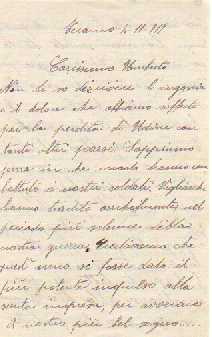 Teramo
Carissimo Umberto
Non ti so descrivere l'angoscia
e il dolore che abbiamo
per la perdita di Udine con
tanti altri paesi. Sappiamo
pure in che modo hanno com
battuto i nostri soldati. Vigliacchi
hanno tradito nel
periodo più solenne della
nostra guerra. Credevamo che
quest'anno si fosse dato il
più potente impulso alla
santa impresa, per avverare
il nostro più bel sogno....